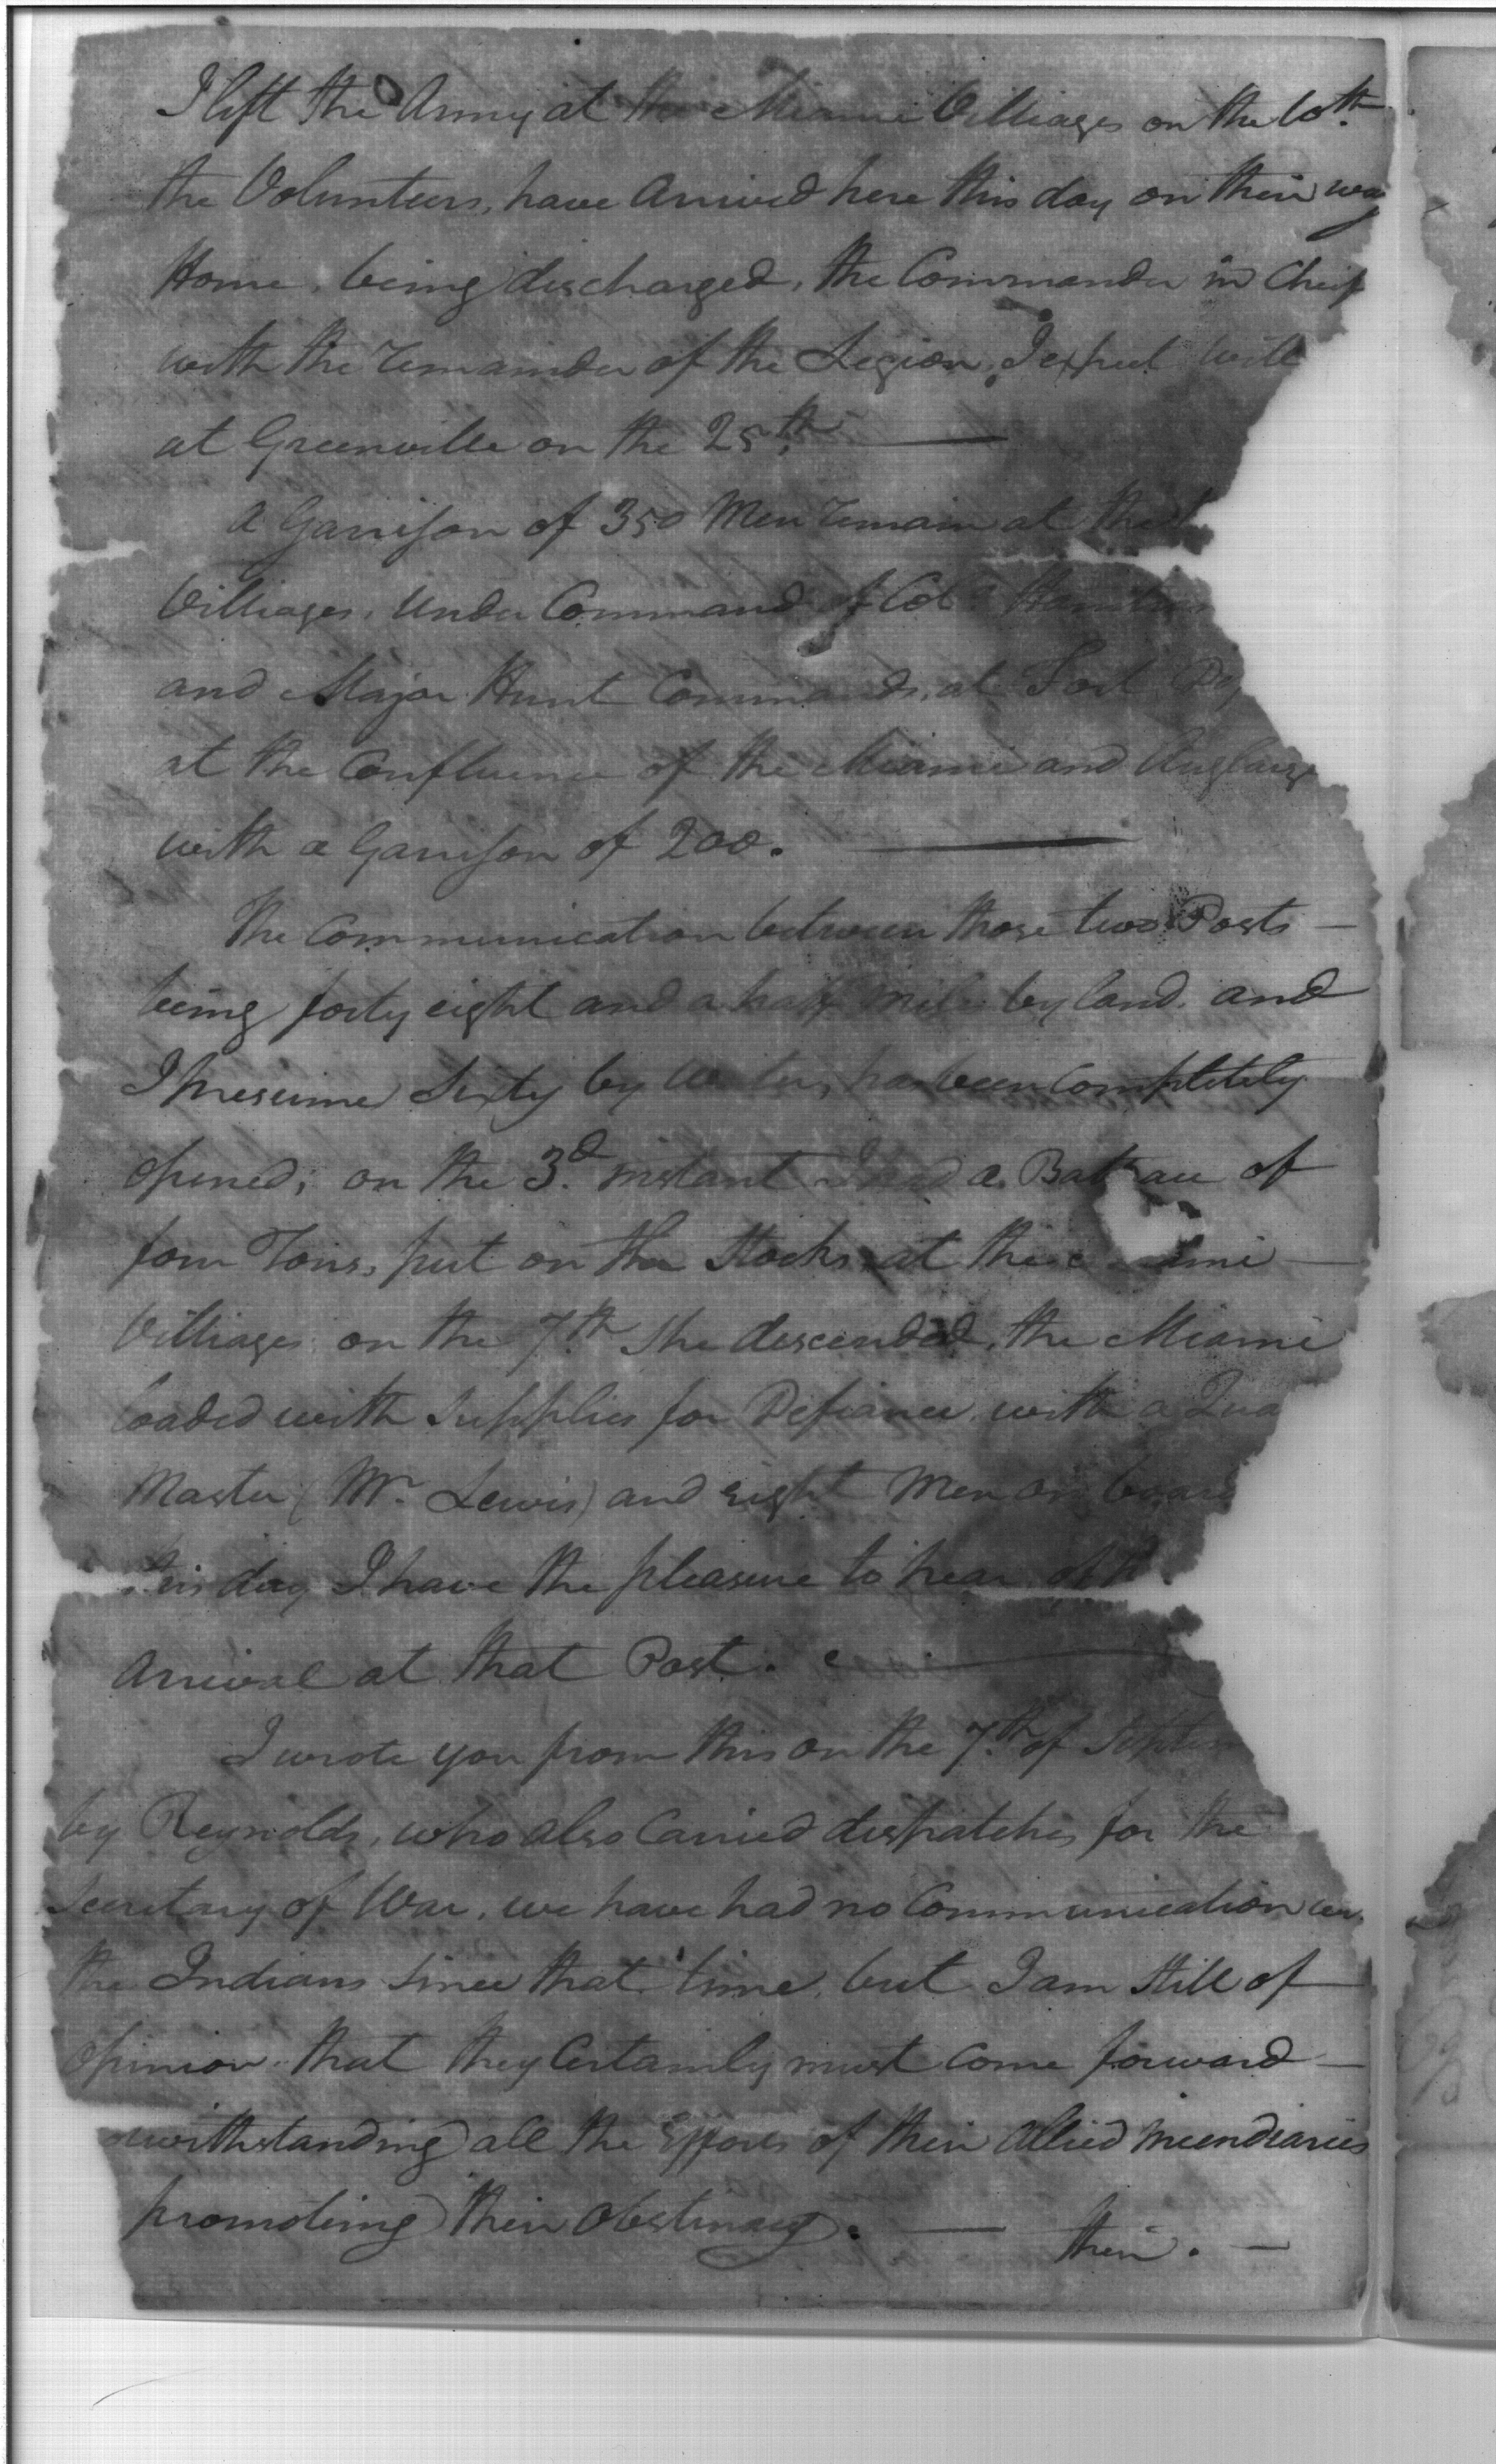 I left the Army at the Miami Villiages on the 10th.
the Volunteers, have Arrived here this day on their way
Home, being discharged, the Commander in Cheif
with the remainder of the Legion, I expect will
at Greenville on the 25th.
A Garrison of 350 Men remain at the
Villiages, Under Command of Colo.
and Major Hunt Commands, at Fort
at the Confluence of the Miami and Auglaize
with a Garrison of 200.
The Communication between those two Posts —
being forty eight and a half miles by land, and
I presume Sixty by Water, has been Completely
opened; on the 3d. instant I had a Batteau of
four Tons, put on the Stocks, at the
Villiages, on the 7th. She descended, the Miami
loaded with Supplies for Defiance, with a Qua
Master (Mr. Lewis) and eight Men on board
this day I have the pleasure to hear of
Arrival at that Post.
I wrote you from this on the 7th. of Septem
by Reynolds, who also Carried dispatches for the
Secretary of War, we have had no Communication
the Indians since that time, but I am Still of
opinion that they Certainly must come forward —
withstanding all the Efforts of their Allied incendiaries
promoting their Obstinacy. — their. —